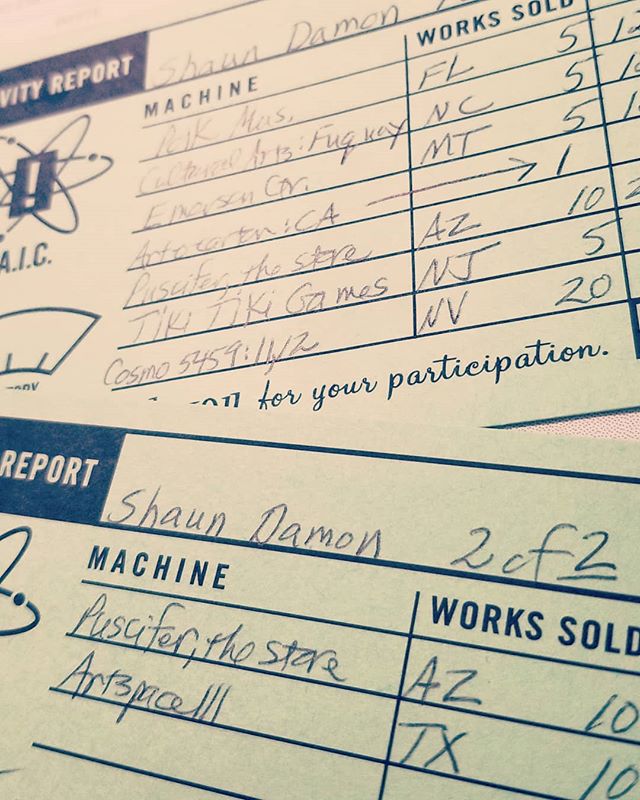 Shaun Damon
VITY REPORT
MACHINE WORKS SOLD
Mus. FL 5
Cultural Arts: Fuquay NC 5
Emerson Cr. MT 5
: CA → 1
Puscifer, the store AZ 10
Tiki Tiki Games NJ 5
Cosmo 5459: 11/2 NV 20
A.I.C.
for your participation.
REPORT
Shaun Damon 2 of 2
MACHINE WORKS SOLD
Puscifer, the store AZ 10
Artspace111 TX 10